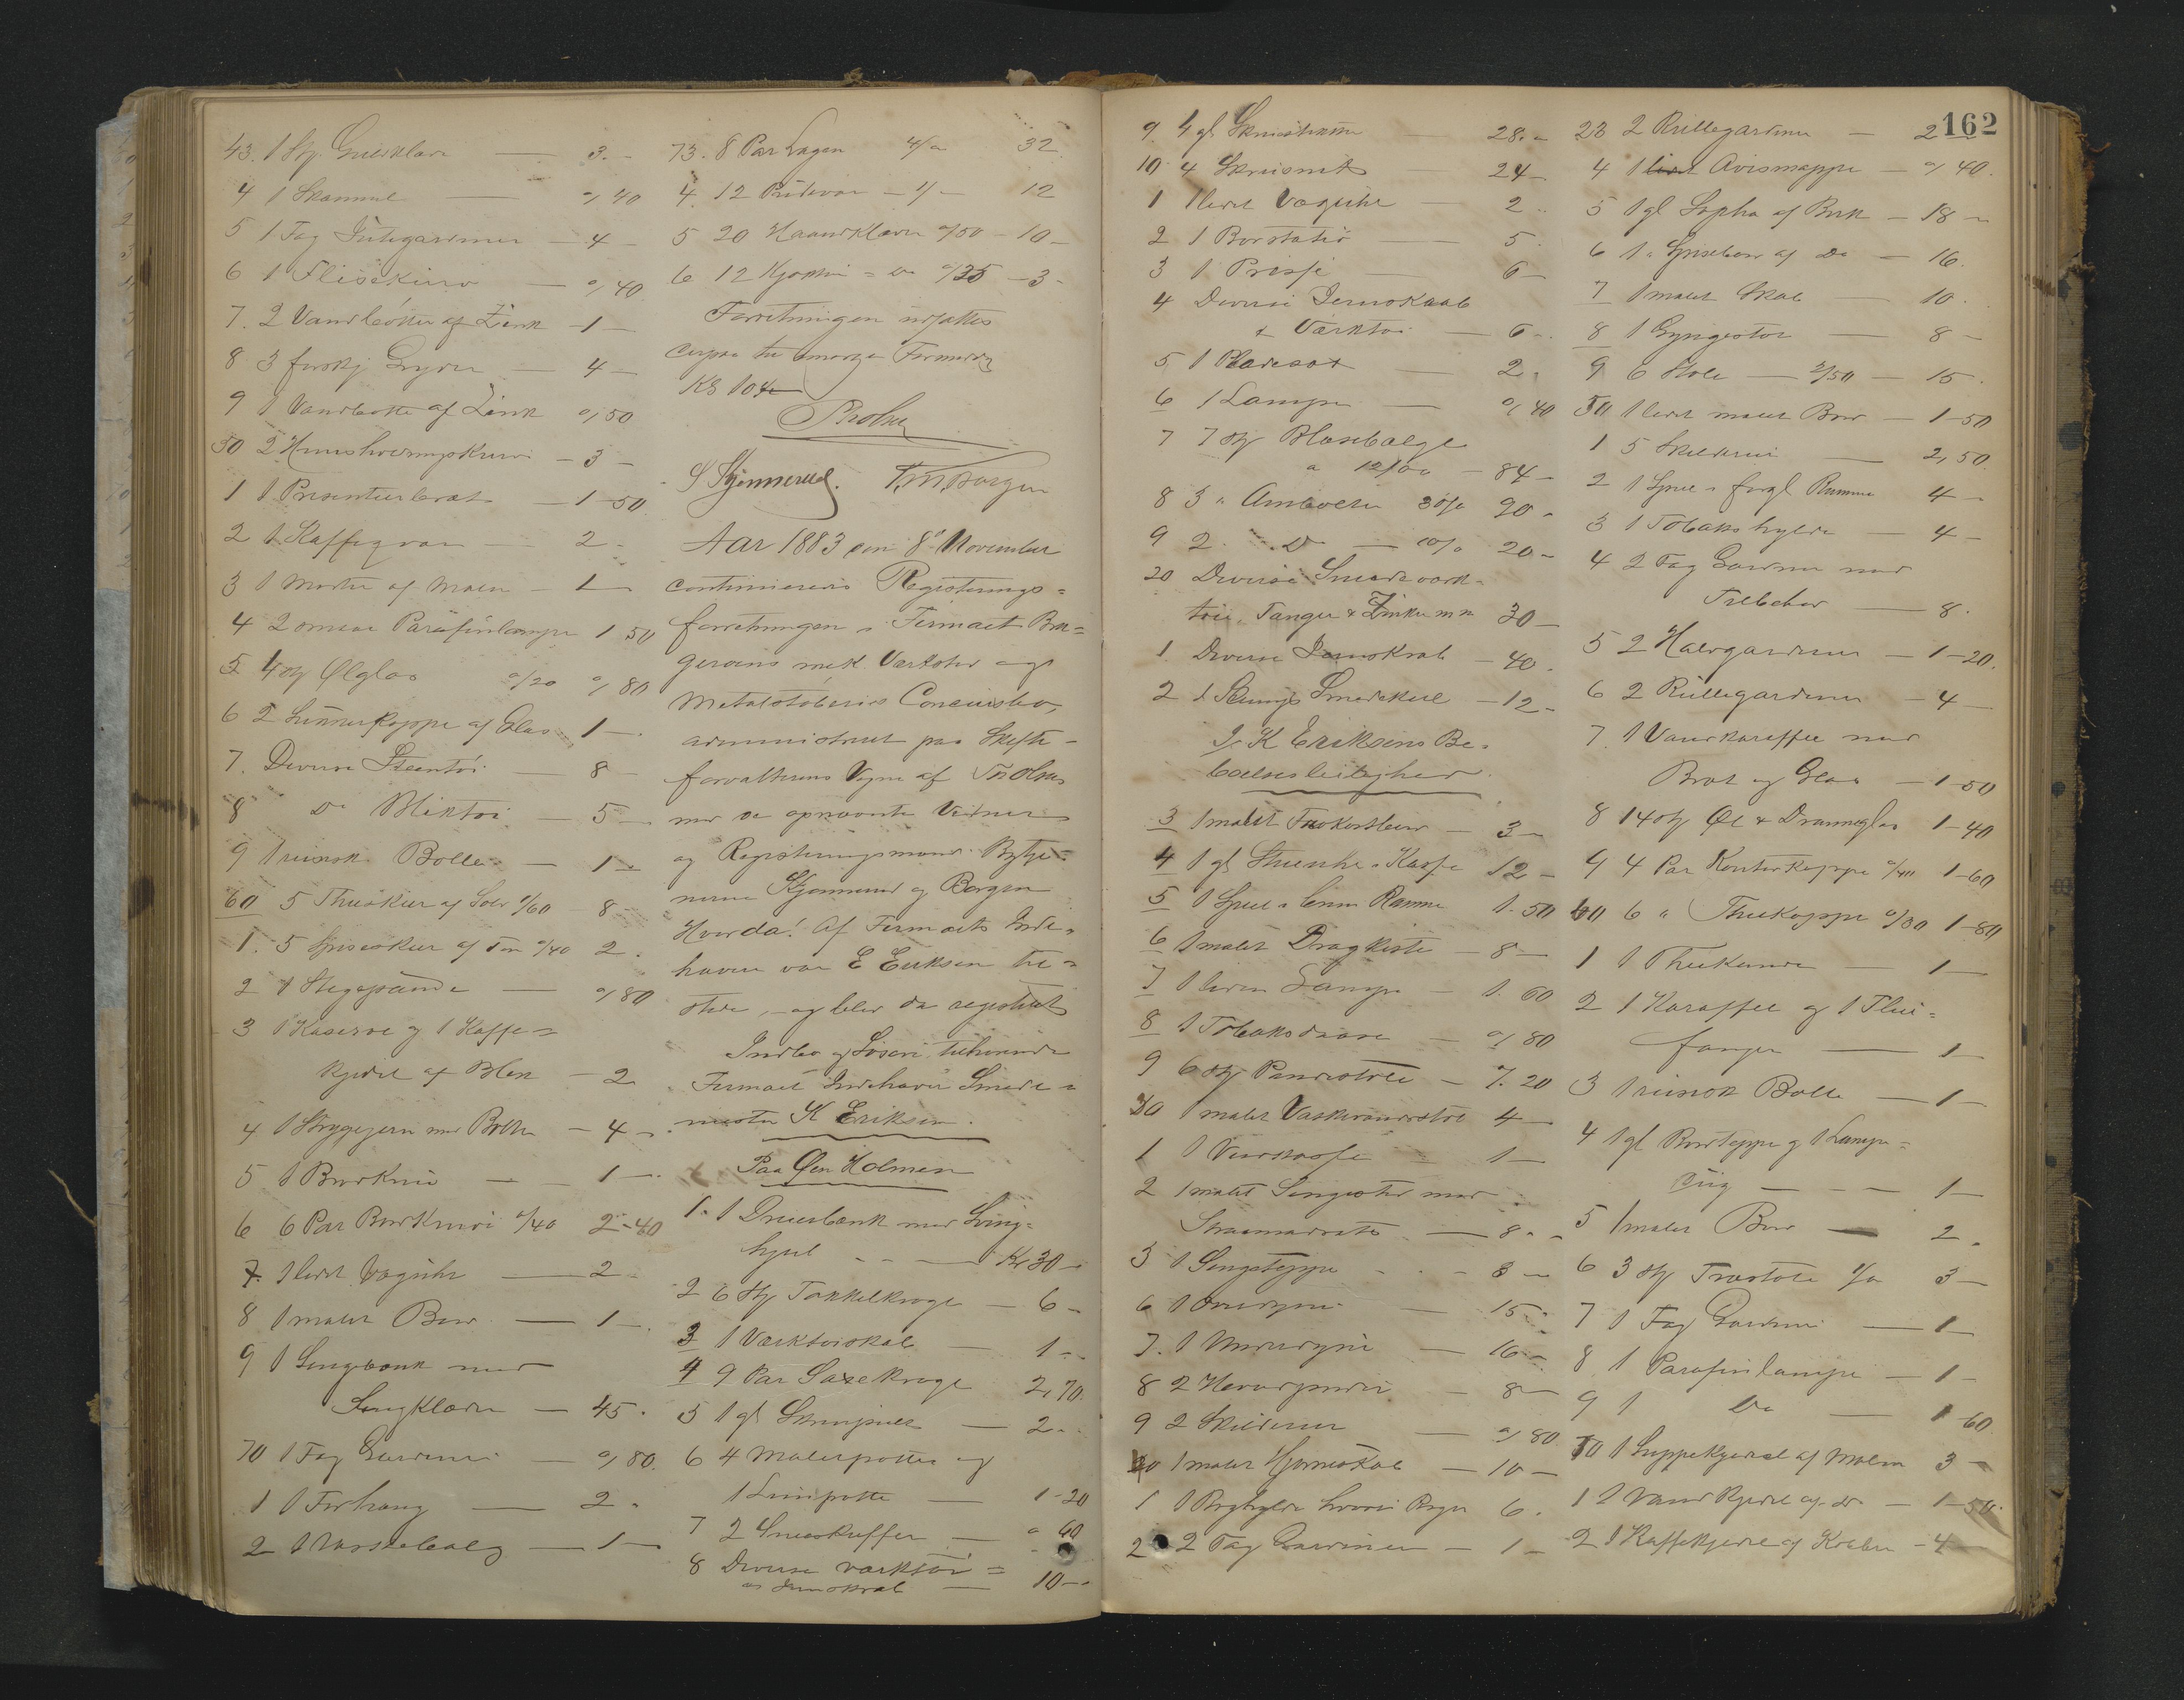 43. 1 Stk. Gulvklæde — 3.-
4 1 Skammel — "/40
5 1 Fag Jutegardiner — 4 -
6 1 Fliskurv — "/40
7. 2 Vandbötter af Zink - 1 -
8 3 forskj Gryder — 4 -
9 1 Vandbötte af Zink "/50
50 2 Huusholdningskurve - 3 -
1 1 Presenteerbræt - 1-50
2 1 Kaffeqvern — 2 -
3 1 Morter af Malm - 1 -
4 2 smaae Parafinlamper 1 50
5 4 Stk Ølglas "/20 "/80
6 2 Sukkerkopper af Glas 1 -
7. Diverse Steentöi — 8 -
8 Do Bliktöi — 5 -
9 1 russisk Bolle — 1 -
60 5 Theskeer af Sölv 1/60 - 8 -
1. 5 Spiseskeer af Tin "/40 2.
2 1 Stegepande — "/80
3 1 Kaserol og 1 Kaffe=
kjedel af Blik - 2
4 1 Strygejern med Bolter - 4 -
5 1 Brödkniv — 1 -
6 6 Par Bordknive "/40 2-40
7. 1 lidet Væguhr — 2 -
8 1 malet Bord — 1 -
9 1 Sengebænk med
Sengklæder — 45.
70 1 Fag Gardiner — "/80.
1 1 Forhæng — 2.
2 1 Vaskebalg — 1 -
73. 8 Par Lagen 4/" 32
4. 12 Pudevar — 1/- 12
5 20 Haandklæder "/50 - 10 -
6 12 Kjökken = Do "/25 - 3 -
Forretningen udsattes
til imorgen Formiddag
Kl 10
Tholus
S Kjønnerud. Borgen
Aar 1883 den 8de November
continueredes Registrerings=
forretningen i Firmaet Bor=
geraens mek Værksted og
Metalstöberies Concursbo,
administreret paa Skifte-
forvalterens Vegne af Tholus
med de opnævnte Vidner
og Registreringsmænd
Kjønnerud og Borgen
Hvorda! Af Firmaets Inde-
havere var E Eriksen til=
stede, - og blev da registreret
Indbo og Lösöre tilhörende
Firmaets Indehaver Smede=
mester K Eriksen.
Paa Øen Holmen
1. 1 Dreiebænk med Sving=
hjul — Kr 30 -
2 6 Stk Takkelkroge — 6 -
3 1 Værktöiskab — 1 -
4 9 Par Saxekroge 2,70.
5 1 gl Skrinjern — 2 -
6 4 Malerpotter og
1 Limpotte — 1-20
7 2 Sneeskuffer — " 60
8 Diverse værktöi =
og Jernskrab — 10 -
162
9. 4 gl Skruestikker — 28.-
10 4 Skruesnit — 24 -
1 1 lidet Væguhr — 2 -
2 1 Borstativ — 5.
3 1 Presse — 6 -
4 Diverse Jernskrab
& Værktöi — 6 -
5 1 — 2.
6 1 Lampe — "/40
7 7 Stk Blæsebælge
a 12/00 - 84 -
8 3 " Ambolter 30/" 90 -
9 2 " Do — 10/" 20 -
20 Diverse Smedeværk-
töi, Tænger & m m 30 -
1. Diverse Jernskrab - 40.
2 1 Smedekul - 12 -
I K Eriksens Be-
boelsesleilighed.
3 1 malet Frokostbord - 3 -
4 1 gl Kasse 12 -
5 1 Speil i brun Ramme 1.50
6 1 malet Dragkiste - 8 -
7 1 liden Lampe - 1.60
8 1 Tobaksdaase — "/80
9 6 Stk Pindestole - 7.20
30 1 malet Vaskevandsstol 4 -
1 1 Vedkasse — 1 -
2 1 malet Sengested med
Straamadrats — 8 -
3 1 Sengeteppe - 8 -
6 1 Overdyne — 15 -
7. 1 Underdyne — 16 -
8 2 Hovedpuder - 8 -
9 2 Skilderier — "/80
40 1 malet Hjörneskab - 10 -
1 1 Boghylde hvori Böger 6.
2 2 Fag Gardiner - 1 -
23 2 Rullegardiner — 2 -
4 1 Avismappe — "/40.
5 1 gl Sopha af Birk - 18 -
6 1 " Spisebord af Do - 16.
7 1 malet Skab — 10.
8 1 Gyngestol — 8 -
9 6 Stole — 2/50 — 15.
50 1 lidet malet Bord - 1-50
1 5 Skilderier — 2,50.
2 1 Speil i forgl Ramme 4 -
3 1 Tobakshylde — 4 -
4 2 Fag Gardiner med
Tilbehör — 8.
5 2 Halvgardiner - 1-20.
6 2 Rullegardiner - 4 -
7. 1 Vandkaraffel med
Bræt og Glas — 1-50
8 14 Stk Øl & Dramglas 1-40
9 4 Par Kopper "/40 1-60
60 6 " Theekopper "/30 1-80
1 1 Theekande — 1 -
2 1 Karaffel og 1 Flue=
fanger — 1 -
3 1 russisk Bolle — 1 -
4 1 gl Bordteppe og 1 Lampe=
— 1 -
5 1 malet Bord — 2.
6 3 Stk Træstole 1/" 3 -
7 1 Fag Gardiner — 1 -
8 1 Parafinlampe — 1 -
9 1 Do — 1 60
70 1 Suppekjedel af Malm 3 -
1 2 Vandkjedel af Do - 1-50.
2 1 Kaffekjedel af Kobber - 4 -